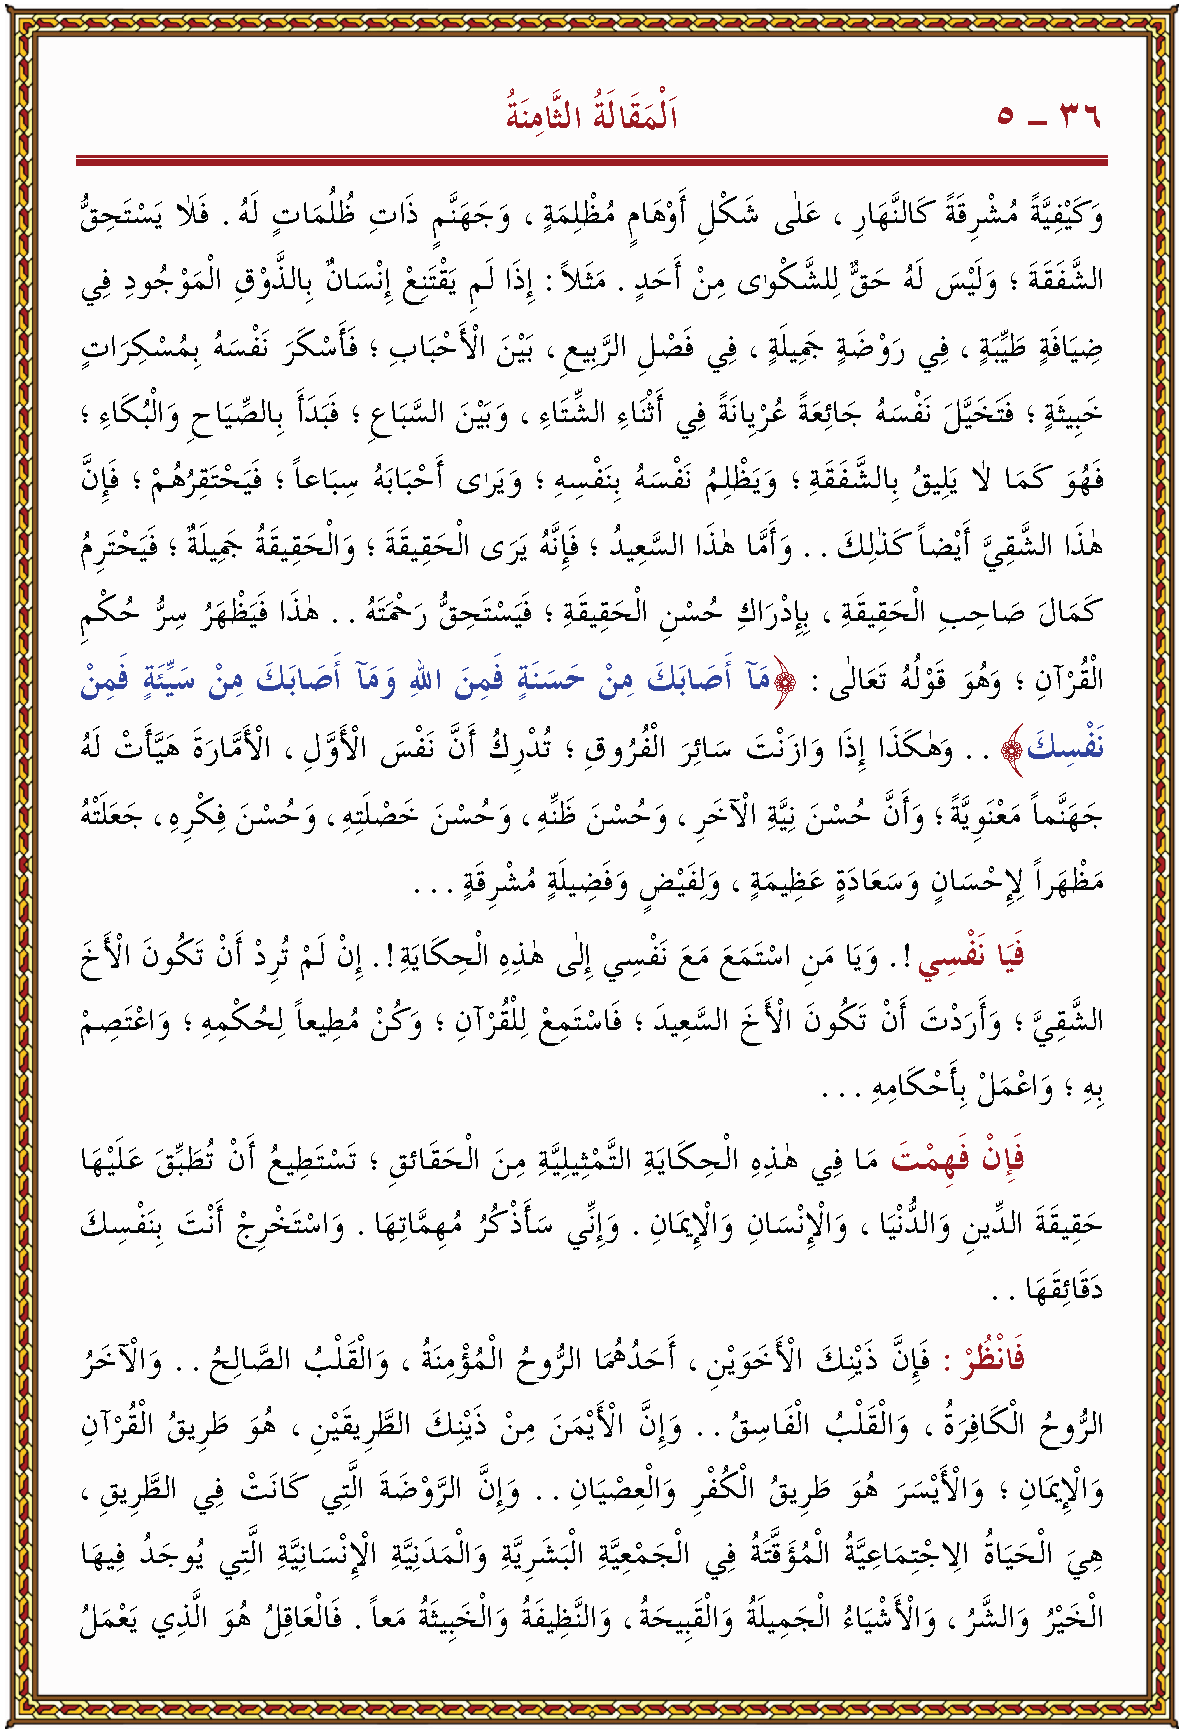 ٣٦ – ٥ اَلْمَقَالَةُ الثَّامِنَةُ
وَكَيْفِيَّةً مُشْرِقَةً كَالنَّهَارِ ، عَلٰى شَكْلِ أَوْهَامٍ مُظْلِمَةٍ ، وَجَهَنَّمٍ ذَاتِ ظُلُمَاتٍ لَهُ . فَلاٰ يَسْتَحِقُّ
الشَّفَقَةَ ؛ وَلَيْسَ لَهُ حَقٌّ لِلشَّكْوٰى مِنْ أَحَدٍ . مَثَلاً : إِذَا لَمْ يَقْتَنِعْ إِنْسَانٌ بِالذَّوْقِ الْمَوْجُودِ فِي
ضِيَافَةٍ طَيِّبَةٍ ، فِي رَوْضَةٍ جَمِيلَةٍ ، فِي فَصْلِ الرَّبِيعِ ، بَيْنَ الْأَحْبَابِ ؛ فَأَسْكَرَ نَفْسَهُ بِمُسْكِرَاتٍ
خَبِيثَةٍ ؛ فَتَخَيَّلَ نَفْسَهُ جَائِعَةً عُرْيَانَةً فِي أَثْنَاءِ الشِّتَاءِ ، وَبَيْنَ السَّبَاعِ ؛ فَبَدَأَ بِالصِّيَاحِ وَالْبُكَاءِ ؛
فَهُوَ كَمَا لاٰ يَلِيقُ بِالشَّفَقَةِ ؛ وَيَظْلِمُ نَفْسَهُ بِنَفْسِهِ ؛ وَيَرٰى أَحْبَابَهُ سِبَاعاً ؛ فَيَحْتَقِرُهُمْ ؛ فَإِنَّ
هٰذَا الشَّقِيَّ أَيْضاً كَذٰلِكَ . . وَأَمَّا هٰذَا السَّعِيدُ ؛ فَإِنَّهُ يَرَى الْحَقِيقَةَ ؛ وَالْحَقِيقَةُ جَمِيلَةٌ ؛ فَيَحْتَرِمُ
كَمَالَ صَاحِبِ الْحَقِيقَةِ ، بِإِدْرَاكِ حُسْنِ الْحَقِيقَةِ ؛ فَيَسْتَحِقُّ رَحْمَتَهُ . . هٰذَا فَيَظْهَرُ سِرُّ حُكْمِ
الْقُرْآنِ ؛ وَهُوَ قَوْلُهُ تَعَالٰى : ﴿مَآ أَصَابَكَ مِنْ حَسَنَةٍ فَمِنَ اللهِ وَمَآ أَصَابَكَ مِنْ سَيِّئَةٍ فَمِنْ
نَفْسِكَ﴾ . . وَهٰكَذَا إِذَا وَازَنْتَ سَائِرَ الْفُرُوقِ ؛ تُدْرِكُ أَنَّ نَفْسَ الْأَوَّلِ ، الْأَمَّارَةَ هَيَّأَتْ لَهُ
جَهَنَّماً مَعْنَوِيَّةً ؛ وَأَنَّ حُسْنَ نِيَّةِ الْآخَرِ ، وَحُسْنَ ظَنِّهِ ، وَحُسْنَ خَصْلَتِهِ ، وَحُسْنَ فِكْرِهِ ، جَعَلَتْهُ
مَظْهَراً لِإِحْسَانٍ وَسَعَادَةٍ عَظِيمَةٍ ، وَلِفَيْضٍ وَفَضِيلَةٍ مُشْرِقَةٍ . . .
فَيَا نَفْسِي ! . وَيَا مَنِ اسْتَمَعَ مَعَ نَفْسِي إِلٰى هٰذِهِ الْحِكَايَةِ ! . إِنْ لَمْ تُرِدْ أَنْ تَكُونَ الْأَخَ
الشَّقِيَّ ؛ وَأَرَدْتَ أَنْ تَكُونَ الْأَخَ السَّعِيدَ ؛ فَاسْتَمِعْ لِلْقُرْآنِ ؛ وَكُنْ مُطِيعاً لِحُكْمِهِ ؛ وَاعْتَصِمْ
بِهِ ؛ وَاعْمَلْ بِأَحْكَامِهِ . . .
فَإِنْ فَهِمْتَ مَا فِي هٰذِهِ الْحِكَايَةِ التَّمْثِيلِيَّةِ مِنَ الْحَقَائقِ ؛ تَسْتَطِيعُ أَنْ تُطَبِّقَ عَلَيْهَا
حَقِيقَةَ الدِّينِ وَالدُّنْيَا ، وَالْإِنْسَانِ وَالْإِيمَانِ . وَإِنِّي سَأَذْكُرُ مُهِمَّاتِهَا . وَاسْتَخْرِجْ أَنْتَ بِنَفْسِكَ
دَقَائِقَهَا . .
فَانْظُرْ : فَإِنَّ ذَيْنِكَ الْأَخَوَيْنِ ، أَحَدُهُمَا الرُّوحُ الْمُؤْمِنَةُ ، وَالْقَلْبُ الصَّالِحُ . . وَالْآخَرُ
الرُّوحُ الْكَافِرَةُ ، وَالْقَلْبُ الْفَاسِقُ . . وَإِنَّ الْأَيْمَنَ مِنْ ذَيْنِكَ الطَّرِيقَيْنِ ، هُوَ طَرِيقُ الْقُرْآنِ
وَالْإِيمَانِ ؛ وَالْأَيْسَرَ هُوَ طَرِيقُ الْكُفْرِ وَالْعِصْيَانِ . . وَإِنَّ الرَّوْضَةَ الَّتِي كَانَتْ فِي الطَّرِيقِ ،
هِيَ الْحَيَاةُ الِاجْتِمَاعِيَّةُ الْمُؤَقَّتَةُ فِي الْجَمْعِيَّةِ الْبَشَرِيَّةِ وَالْمَدَنِيَّةِ الْإِنْسَانِيَّةِ الَّتِي يُوجَدُ فِيهَا
الْخَيْرُ وَالشَّرُّ ، وَالْأَشْيَاءُ الْجَمِيلَةُ وَالْقَبِيحَةُ ، وَالنَّظِيفَةُ وَالْخَبِيثَةُ مَعاً . فَالْعَاقِلُ هُوَ الَّذِي يَعْمَلُ